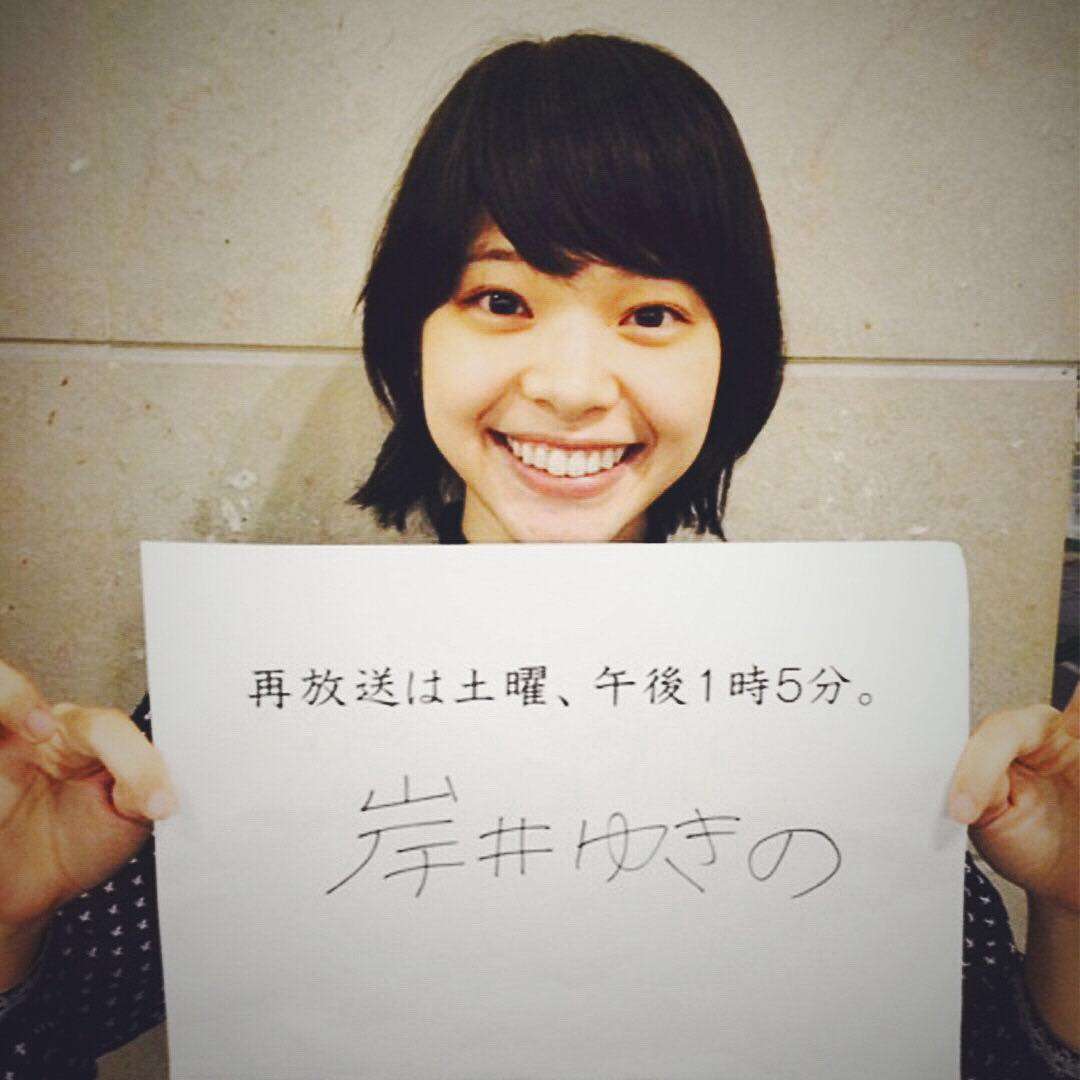 再放送は土曜、午後1時5分。
岸井ゆきの